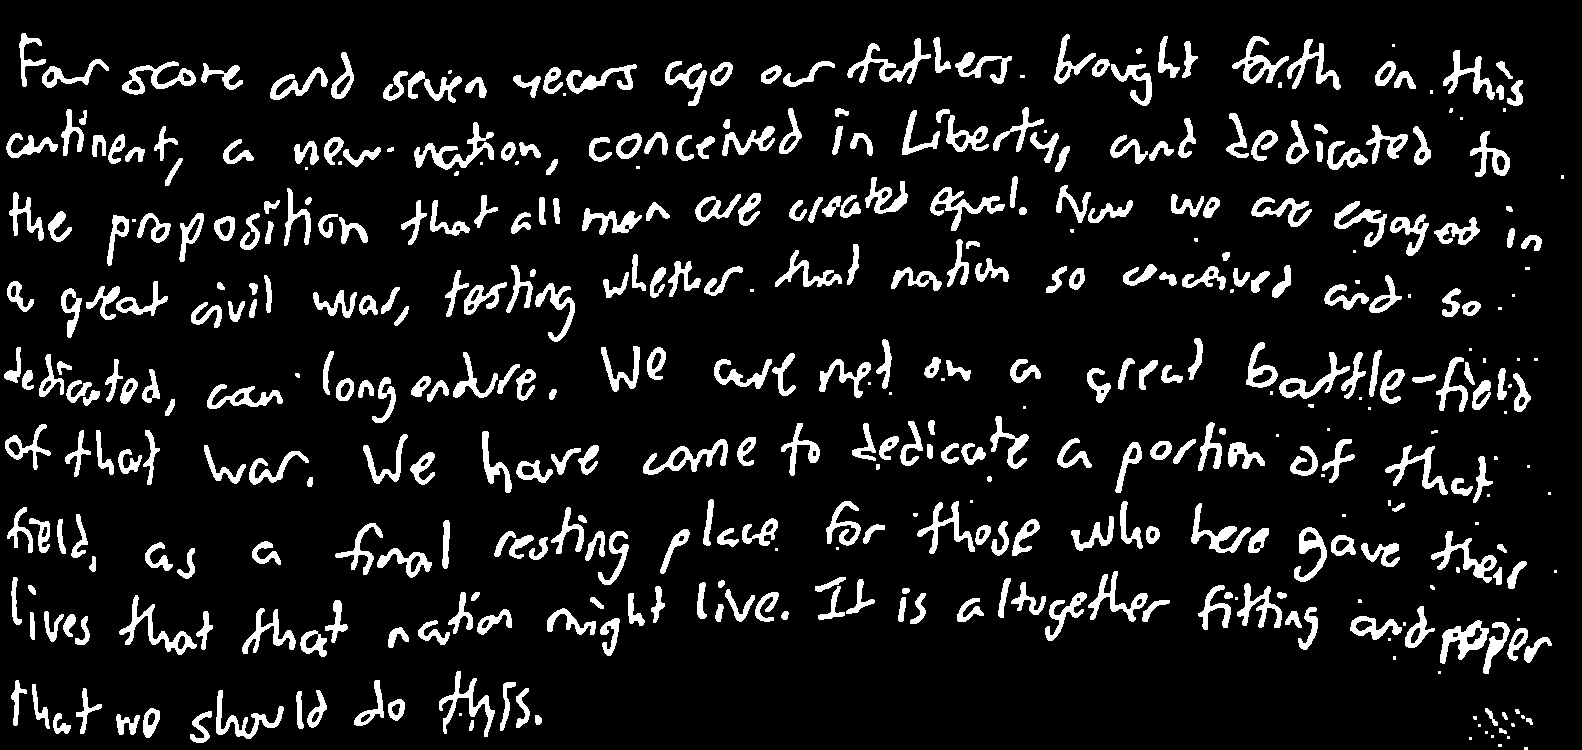 Four score and seven years ago our fathers brought forth on this
continent, a new nation, conceived in Liberty, and dedicated to
the proposition that all men are created equal. Now we are engaged in
a great civil war, testing whether that nation so conceived and so
dedicated, can long endure. We are met on a great battle-field
of that war. We have come to dedicate a portion of that
field, as a final resting place for those who here gave their
lives that that nation might live. It is altogether fitting and proper
that we should do this.